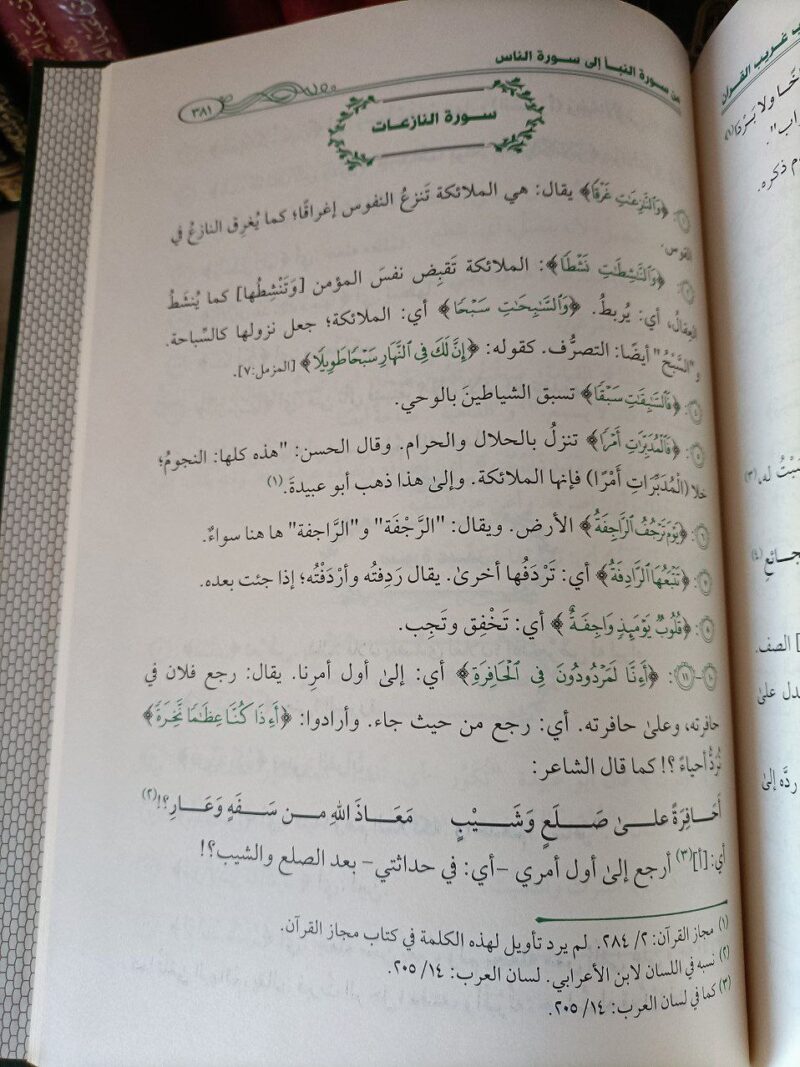 من سورة النبأ إلى سورة الناس
٣٨١
سورة النازعات
١: ﴿وَٱلنَّٰزِعَٰتِ غَرْقًا﴾ يقال: هي الملائكة تَنزعُ النفوس إغراقًا؛ كما يُغرِق النازعُ في
القوس.
٢: ﴿وَٱلنَّٰشِطَٰتِ نَشْطًا﴾: الملائكة تَقبِض نفسَ المؤمن [وَتَنْشِطُها] كما يُنشَطُ
العِقالُ، أي: يُربطُ. ﴿وَٱلسَّٰبِحَٰتِ سَبْحًا﴾ أي: الملائكة؛ جعل نزولها كالسِّباحة.
و"السَّبْحُ" أيضًا: التصرُّف. كقوله: ﴿إِنَّ لَكَ فِي ٱلنَّهَارِ سَبْحًا طَوِيلًا﴾ [المزمل:٧].
٤: ﴿فَٱلسَّٰبِقَٰتِ سَبْقًا﴾ تسبق الشياطينَ بالوحي.
٥: ﴿فَٱلْمُدَبِّرَٰتِ أَمْرًا﴾ تنزلُ بالحلال والحرام. وقال الحسن: "هذه كلها: النجومُ؛
خلا (الْمُدَبِّرَاتِ أَمْرًا) فإنها الملائكة. وإلىٰ هذا ذهب أبو عبيدةَ.(١)
٦: ﴿يَوْمَ تَرْجُفُ ٱلرَّاجِفَةُ﴾ الأرض. ويقال: "الرَّجْفَة" و"الرَّاجفة" ها هنا سواءٌ.
٧: ﴿تَتْبَعُهَا ٱلرَّادِفَةُ﴾ أي: تَرْدَفُها أخرىٰ. يقال رَدِفتُه وأرْدَفتُه؛ إذا جئت بعده.
٨: ﴿قُلُوبٌ يَوْمَئِذٍ وَاجِفَةٌ﴾ أي: تَخْفِق وتَجِب.
١٠-١١: ﴿أَءِنَّا لَمَرْدُودُونَ فِي ٱلْحَافِرَةِ﴾ أي: إلىٰ أول أمرِنا. يقال: رجع فلان في
حافرته، وعلىٰ حافرته. أي: رجع من حيث جاء. وأرادوا: ﴿أَءِذَا كُنَّا عِظَٰمًا نَّخِرَةً﴾
نُرَدُّ أحياءً ؟! كما قال الشاعر:
أَحَـافِرَةً علـىٰ صَـلَـعٍ وَشَـيْـبٍ مَعَـاذَ اللهِ مـن سَـفَهٍ وَعَـارِ؟!(٢)
أي: [أ](٣) أرجع إلىٰ أول أمري -أي: في حداثتي- بعد الصلع والشيب؟!
(١) مجاز القرآن: ٢/ ٢٨٤. لم يرد تأويل لهذه الكلمة في كتاب مجاز القرآن.
(٢) نسبه في اللسان لابن الأعرابي. لسان العرب: ١٤/ ٢٠٥.
(٣) كما في لسان العرب: ١٤/ ٢٠٥.
غريب القرآن
ولا بَرْدًا(١)
ذكره.
له.(٣)
جائعِ(٤)
الصف.
علىٰ
ردَّه إلىٰ